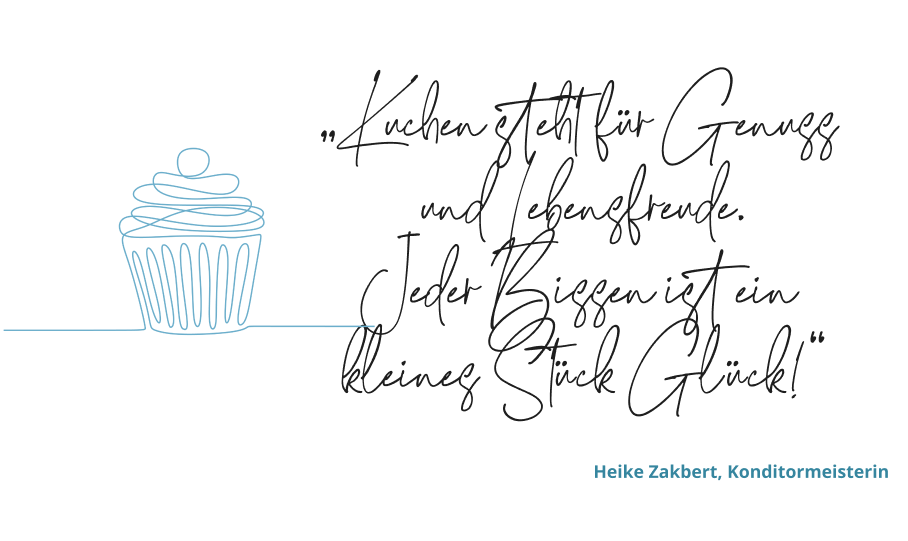 „Kuchen steht für Genuss
und Lebensfreude.
Jeder Bissen ist ein
kleines Stück Glück!“
Heike Zakbert, Konditormeisterin